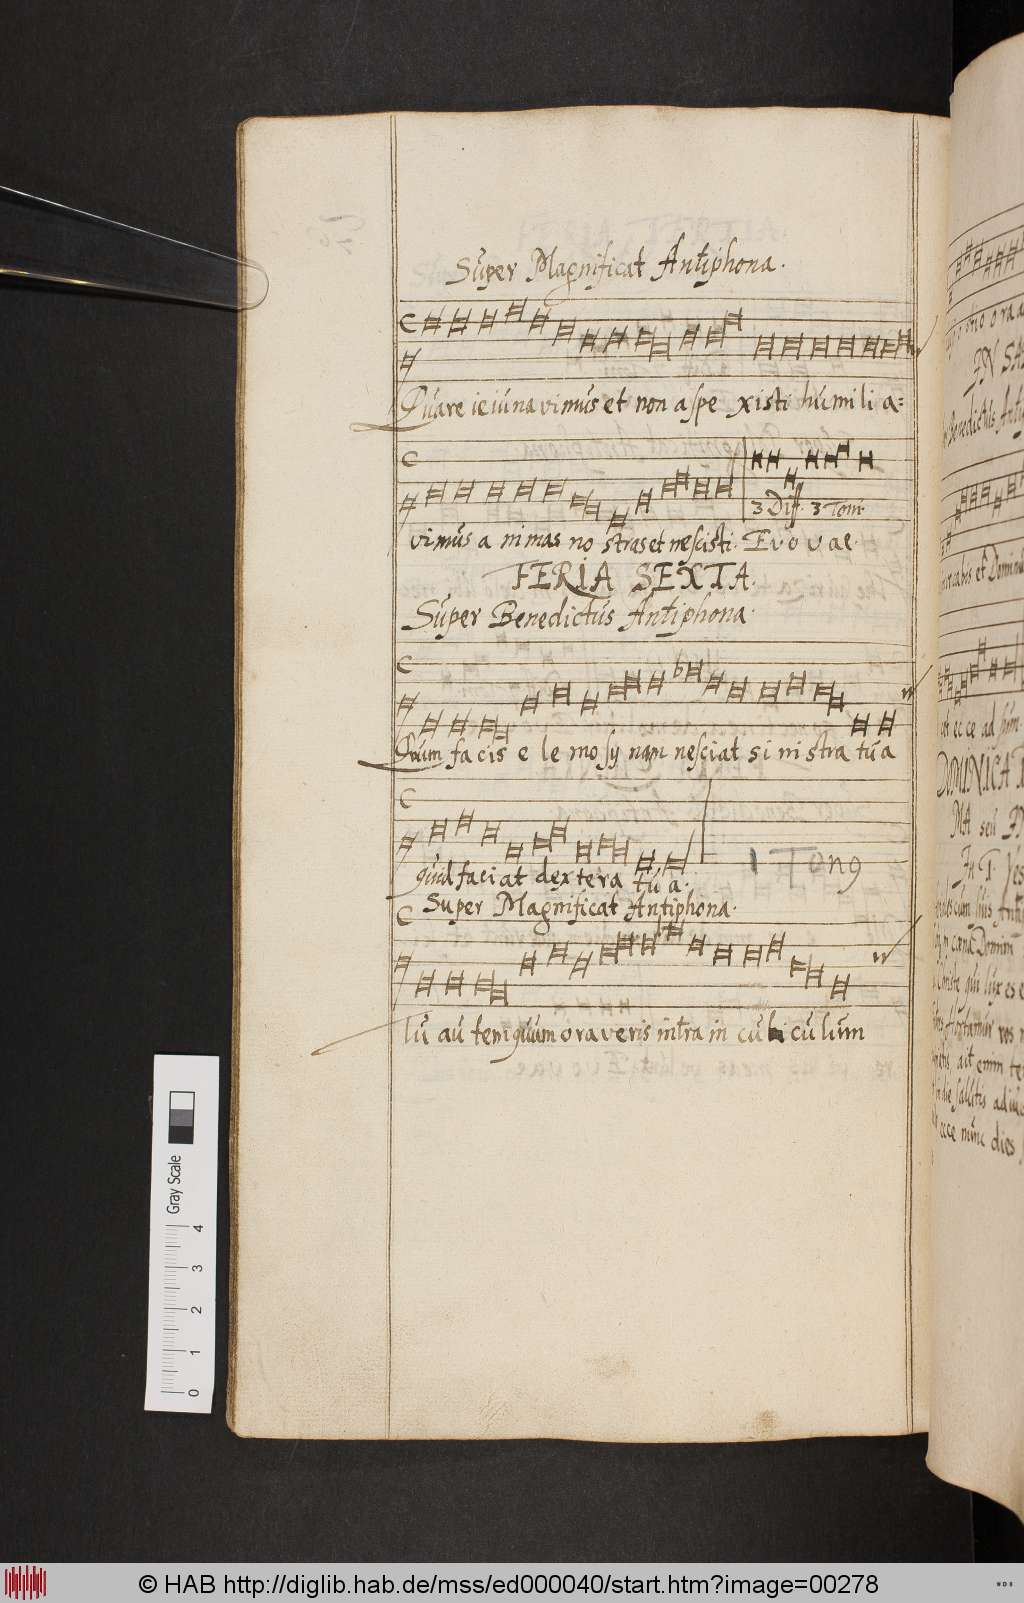 Super Magnificat Antiphona.
Quare ieiunavimus et non aspe xisti humi li a=
vimus a nimas no stras et nescisti. Evovae.
3 Diff. 3 Ton.
FERIA SEXTA.
Super Benedictus Antiphona.
Dum facis e le mo sy nam nesciat si ni stra tua
quid faciat dextera tua.
1 Tong
Super Magnificat Antiphona.
Tu autem quum oraveris intra in cubiculum
Gray Scale
0 1 2 3 4
© HAB http://diglib.hab.de/mss/ed000040/start.htm?image=00278